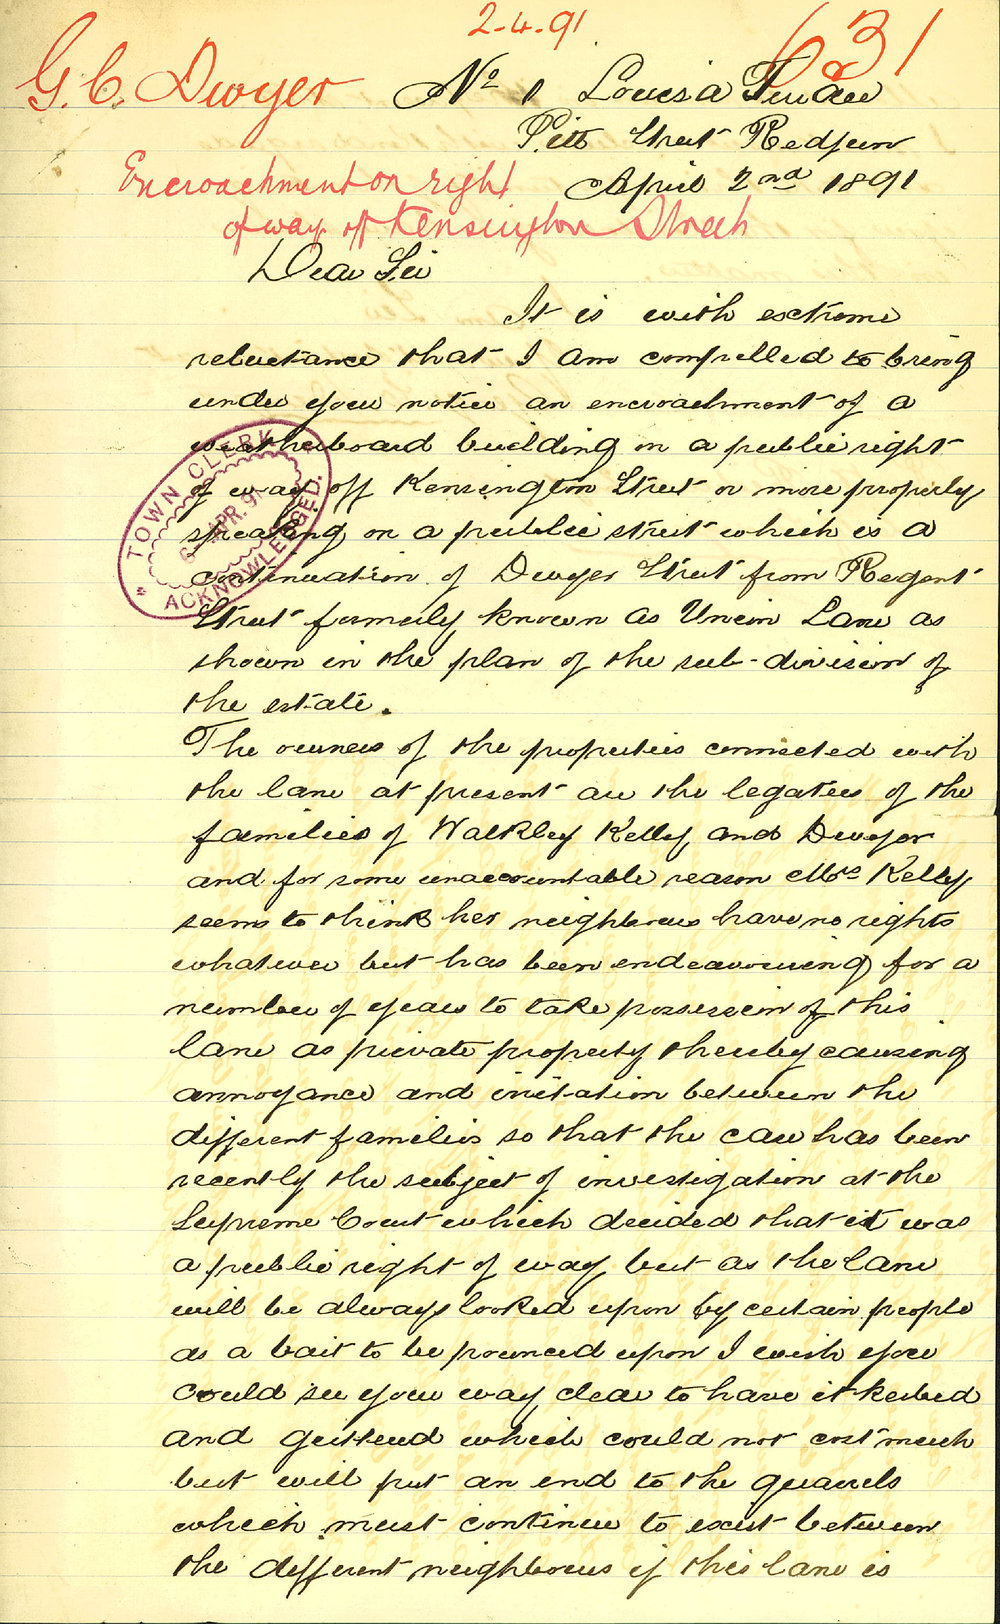 2-4-91
631
G. C. Dwyer
No 1 Louisa Terrace
Pitt Street Redfern
April 2nd 1891
Encroachment on right
of way off Kensington Street
Dear Sir
It is with extreme
reluctance that I am compelled to bring
under your notice an encroachment of a
weatherboard building on a public right
of way off Kensington Street or more properly
speaking on a public street which is a
continuation of Dwyer Street from Regent
Street formerly known as Union Lane as
shown in the plan of the sub-division of
the estate.
TOWN CLERK
APR. 91
ACKNOWLEDGED.
The owners of the properties connected with
the lane at present are the legatees of the
families of Walkley Kelly and Dwyer
and for some unaccountable reason Mrs Kelly
seems to think her neighbours have no rights
whatever but has been endeavouring for a
number of years to take possession of this
lane as private property thereby causing
annoyance and irritation between the
different families so that the case has been
recently the subject of investigation at the
Supreme Court which decided that it was
a public right of way but as the lane
will be always looked upon by certain people
as a bait to be pounced upon I wish you
could see your way clear to have it kerbed
and guttered which could not cost much
but will put an end to the quarrels
which must continue to exist between
the different neighbours if this lane is